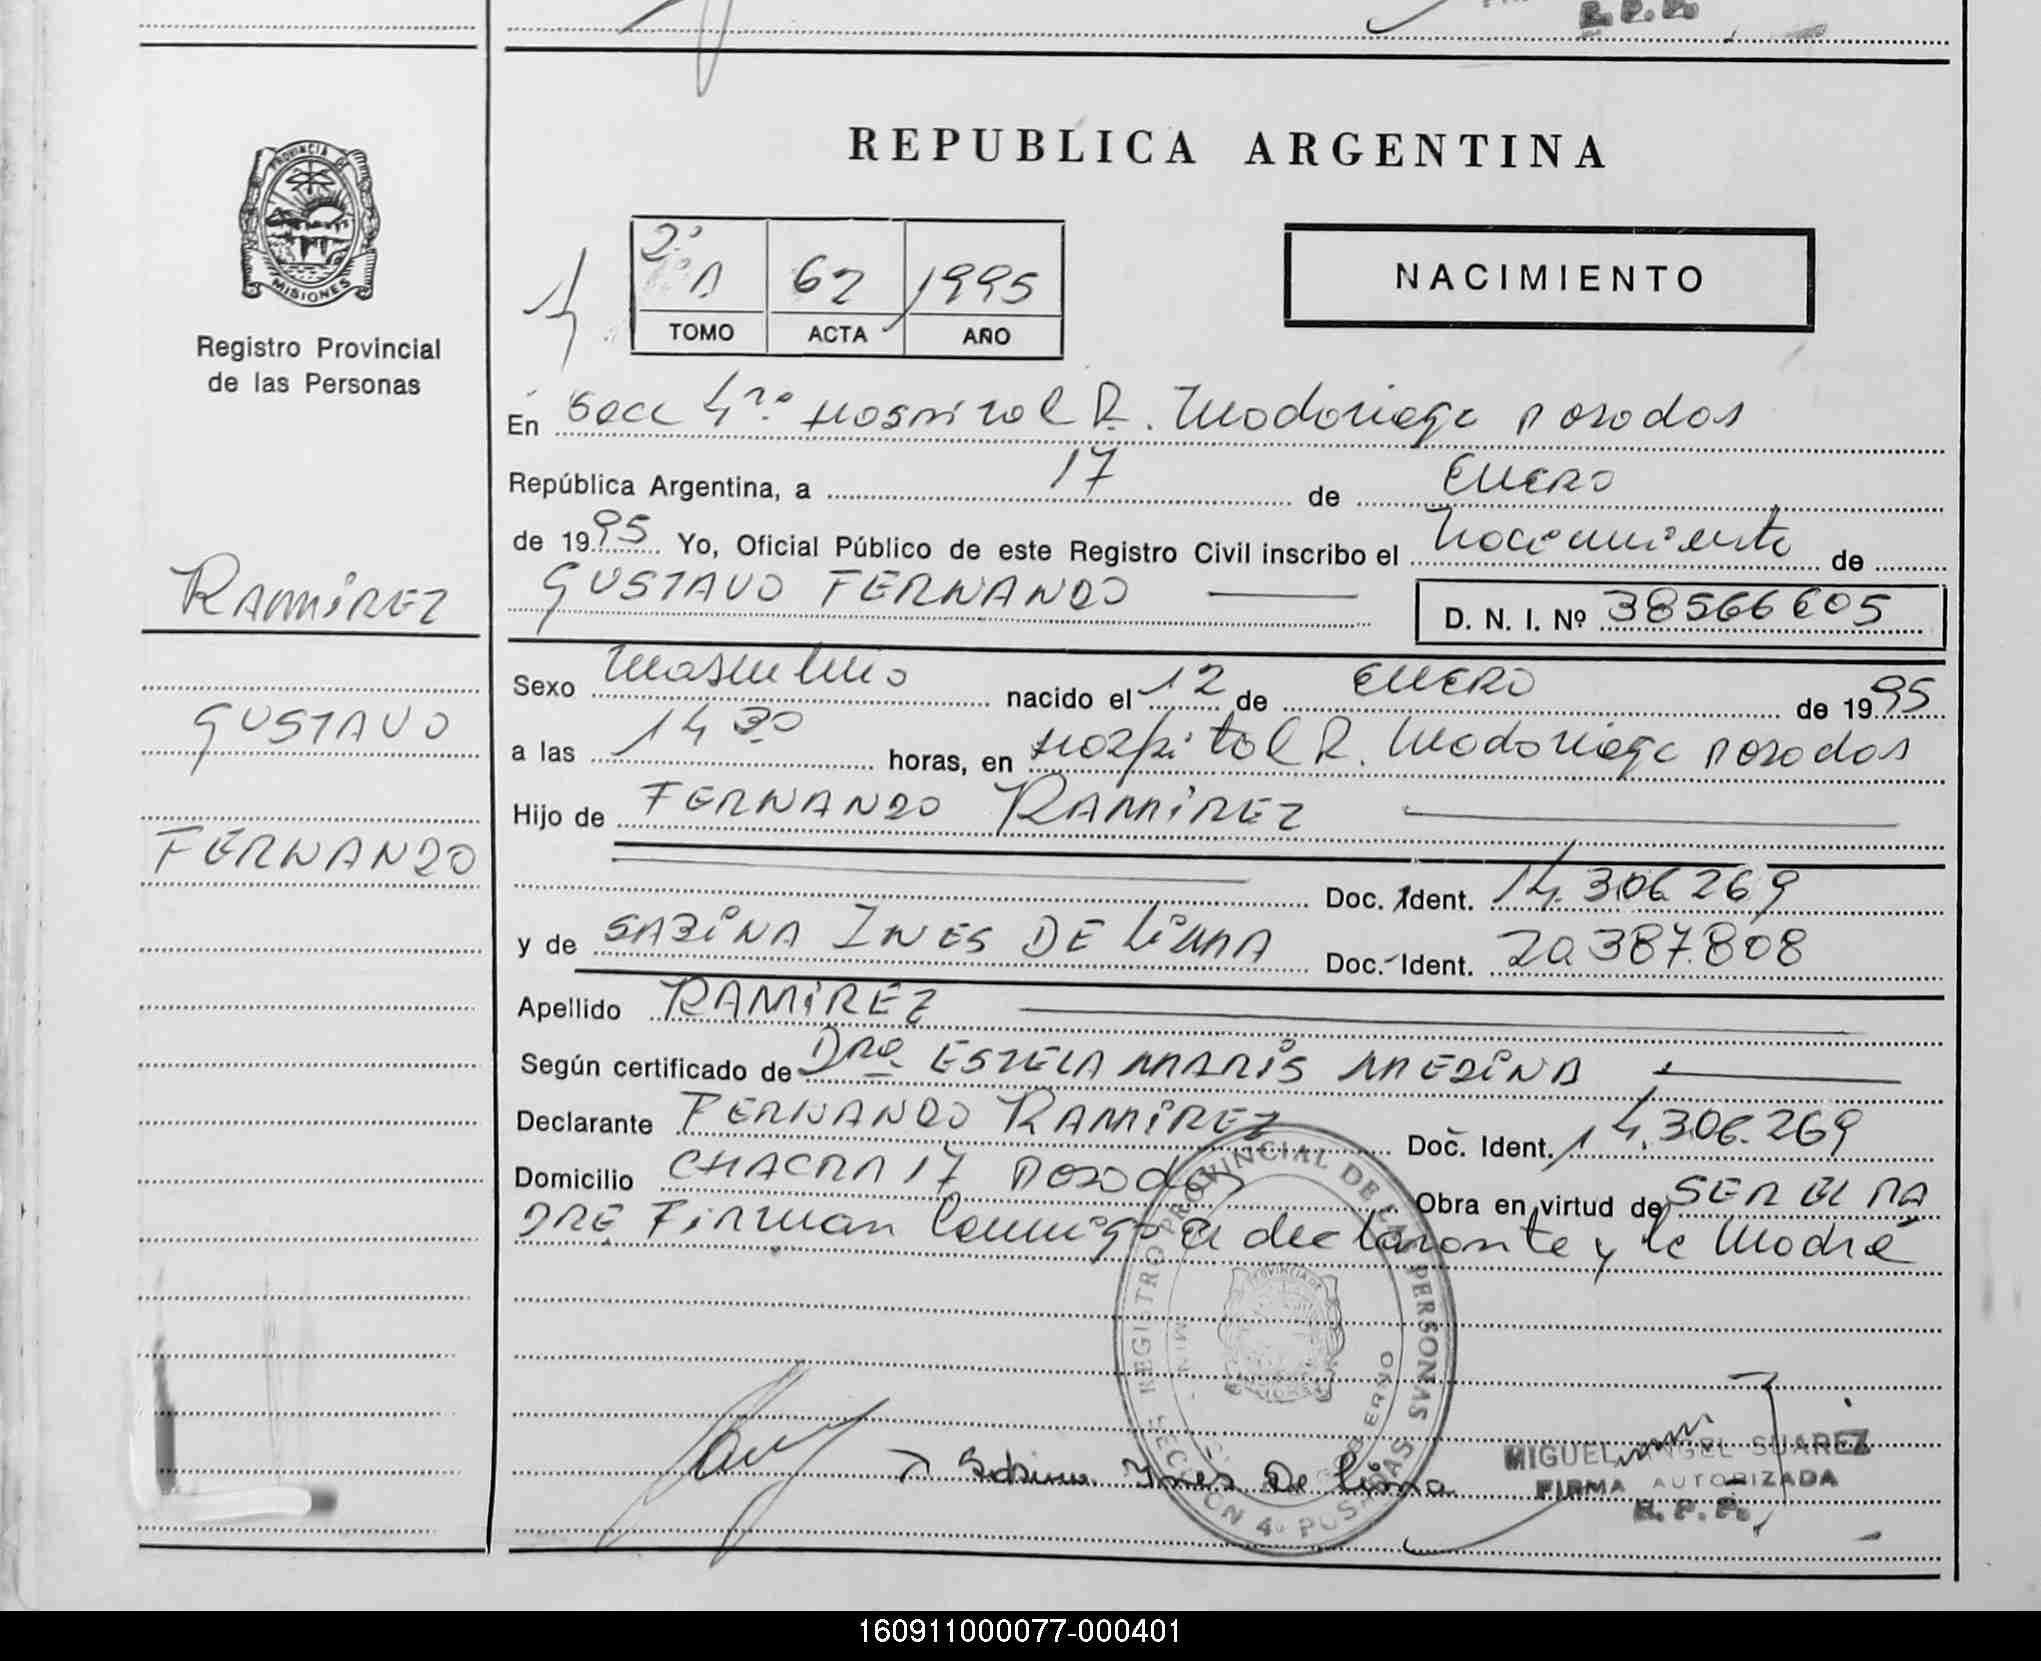 R. P. P.
REPUBLICA ARGENTINA
PROVINCIA DE
MISIONES
Registro Provincial
de las Personas
2º
A 62 1995
TOMO ACTA AÑO
NACIMIENTO
En Secc 4ta Hospital R. Madariaga Posadas
República Argentina, a 17 de Enero
de 1995 Yo, Oficial Público de este Registro Civil inscribo el Nacimiento de
RAMIREZ
GUSTAVO FERNANDO D. N. I. Nº 38566605
Sexo Masculino nacido el 12 de ENERO de 1995
GUSTAVO
a las 14 30 horas, en Hospital R. Madariaga Posadas
Hijo de FERNANDO RAMIREZ
FERNANDO
Doc. Ident. 14.306.269
y de SABINA INES DE LiMA Doc. Ident. 20.387.808
Apellido RAMIREZ
Según certificado de DRa. ESTELA MARIS MEDINA
Declarante FERNANDO RAMIREZ Doc. Ident. 14.306.269
Domicilio CHACRA 17 Posadas Obra en virtud de SER EL PA
DRE Firman Conmigo el declarante y la Madre
REGISTRO PROVINCIAL DE LAS PERSONAS
SECCION 4º POSADAS
Sabina Inés De Lima
MIGUEL ANGEL SUAREZ
FIRMA AUTORIZADA
R. P. P.
160911000077-000401